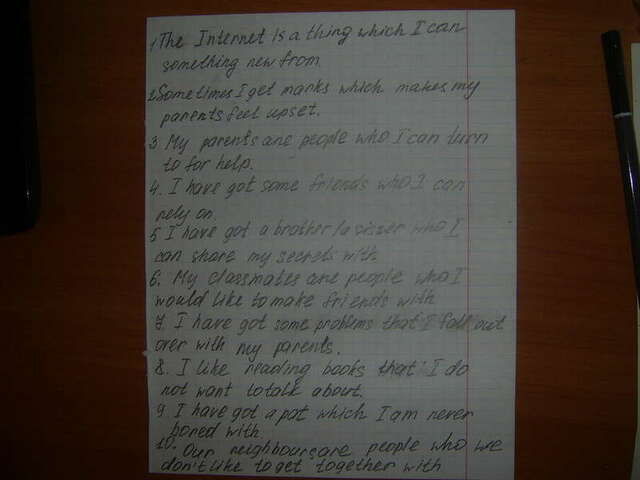 1 The Internet is a thing which I can
something new from
2 Sometimes I get marks which makes my
parents feel upset.
3. My parents are people who I can turn
to for help.
4. I have got some friends who I can
rely on
5 I have got a brother/a sister who I
can share my secrets with
6. My classmates are people who I
would like to make friends with
7. I have got some problems that I fall out
over with my parents.
8. I like reading books that I do
not want to talk about.
9. I have got a pat which I am never
bored with
10. Our neighbours are people who we
don't like to get together with